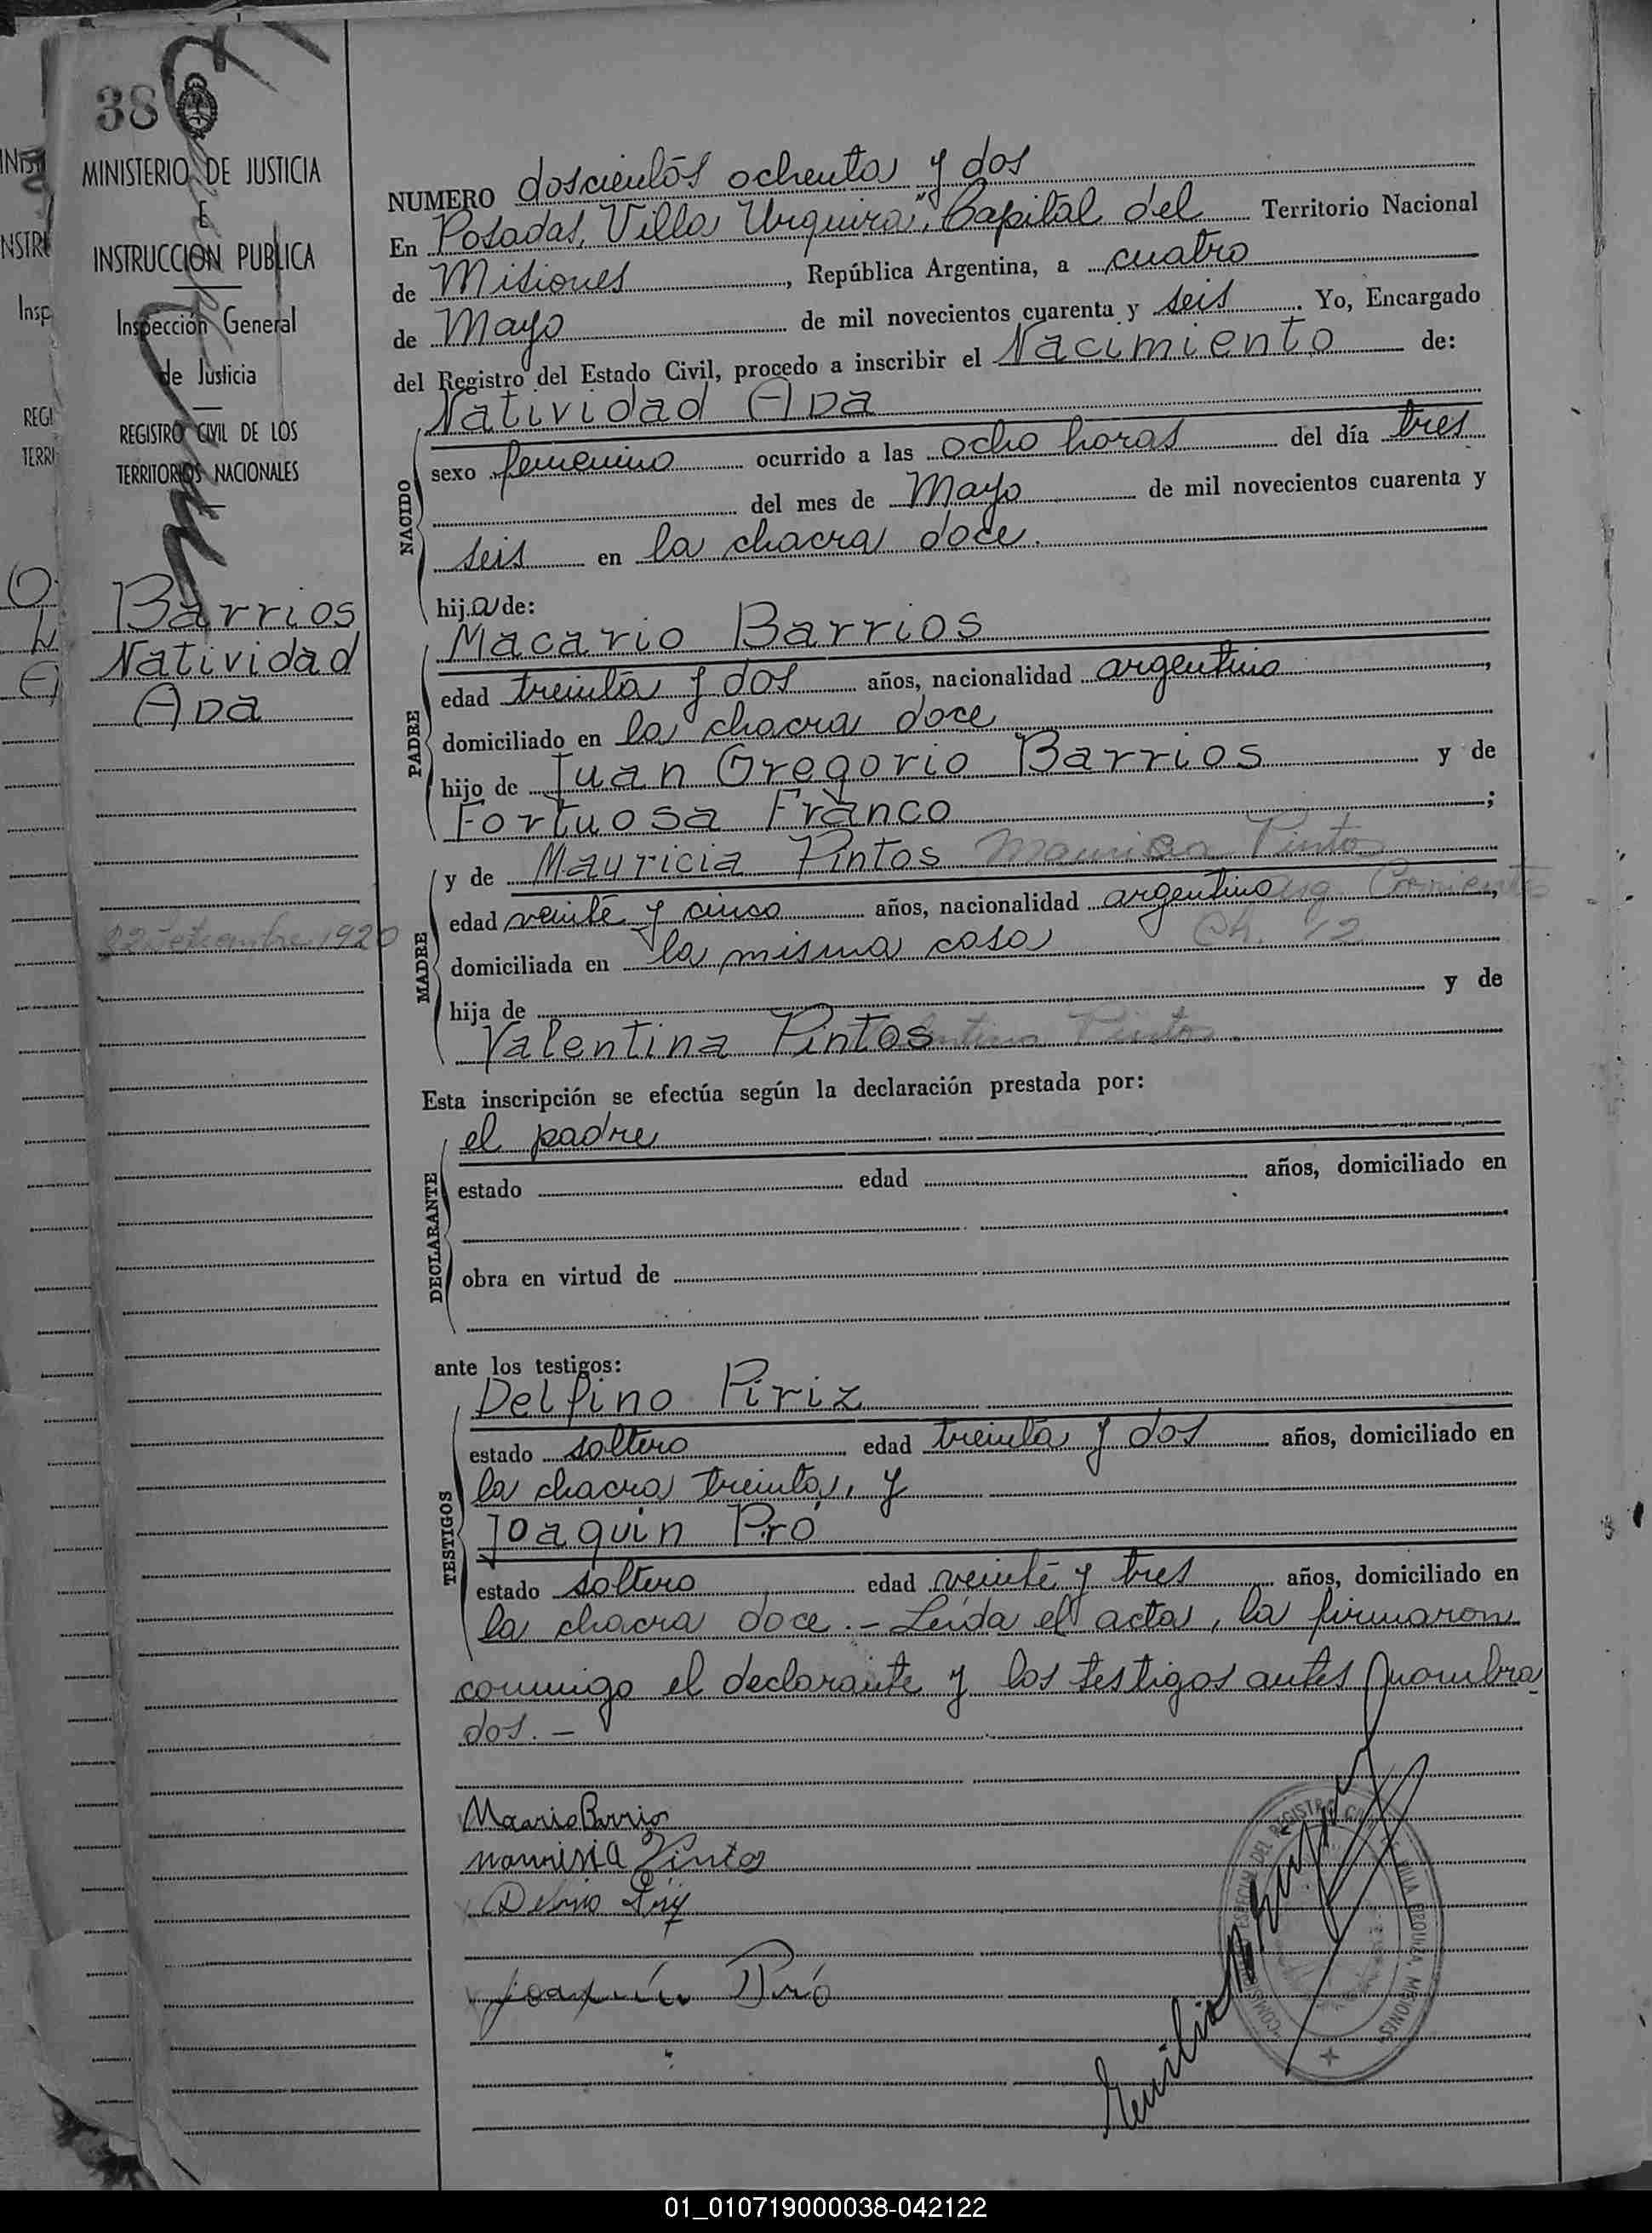 38
MINISTERIO DE JUSTICIA
E
INSTRUCCION PUBLICA
Inspección General
de Justicia
REGISTRO CIVIL DE LOS
TERRITORIOS NACIONALES
Barrios
Natividad
Ada
22 Setiembre 1920
NUMERO doscientos ochenta y dos
En Posadas, Villa Urquiza, Capital del Territorio Nacional
de Misiones, República Argentina, a cuatro
de Mayo de mil novecientos cuarenta y seis. Yo, Encargado
del Registro del Estado Civil, procedo a inscribir el Nacimiento de:
NACIDO
Natividad Ada
sexo femenino ocurrido a las ocho horas del día tres
del mes de Mayo de mil novecientos cuarenta y
seis en la chacra doce.
hija de:
PADRE
Macario Barrios
edad treinta y dos años, nacionalidad argentino,
domiciliado en la chacra doce
hijo de Juan Gregorio Barrios y de
Fortuosa Franco;
MADRE
y de Mauricia Pintos Mauricia Pinto
edad veinte y cinco años, nacionalidad argentina, Corrientes
domiciliada en la misma casa Ch. 12
hija de y de
Valentina Pintos Pinto
Esta inscripción se efectúa según la declaración prestada por:
DECLARANTE
el padre
estado edad años, domiciliado en
obra en virtud de
ante los testigos:
TESTIGOS
Delfino Piriz
estado soltero edad treinta y dos años, domiciliado en
la chacra treinta, y
Joaquin Pró
estado soltero edad veinte y tres años, domiciliado en
la chacra doce.- Leída el acta, la firmaron
conmigo el declarante y los testigos antes nombra
dos.-
Macario Barrios
Mauricia Pinto
Joaquín Pró
Emilio
REGISTRO CIVIL
VILLA URQUIZA, MISIONES
01_010719000038-042122